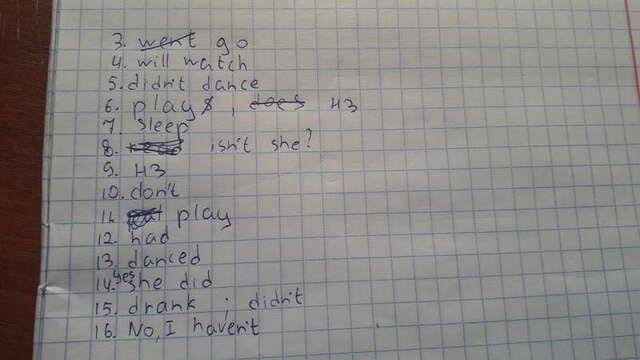 3. went go
4. will watch
5. didn't dance
6. plays, does нз
7. sleep
8. isn't she?
9. нз
10. don't
11. play
12. had
13. danced
14. yes she did
15. drank ; didn't
16. No, I haven't